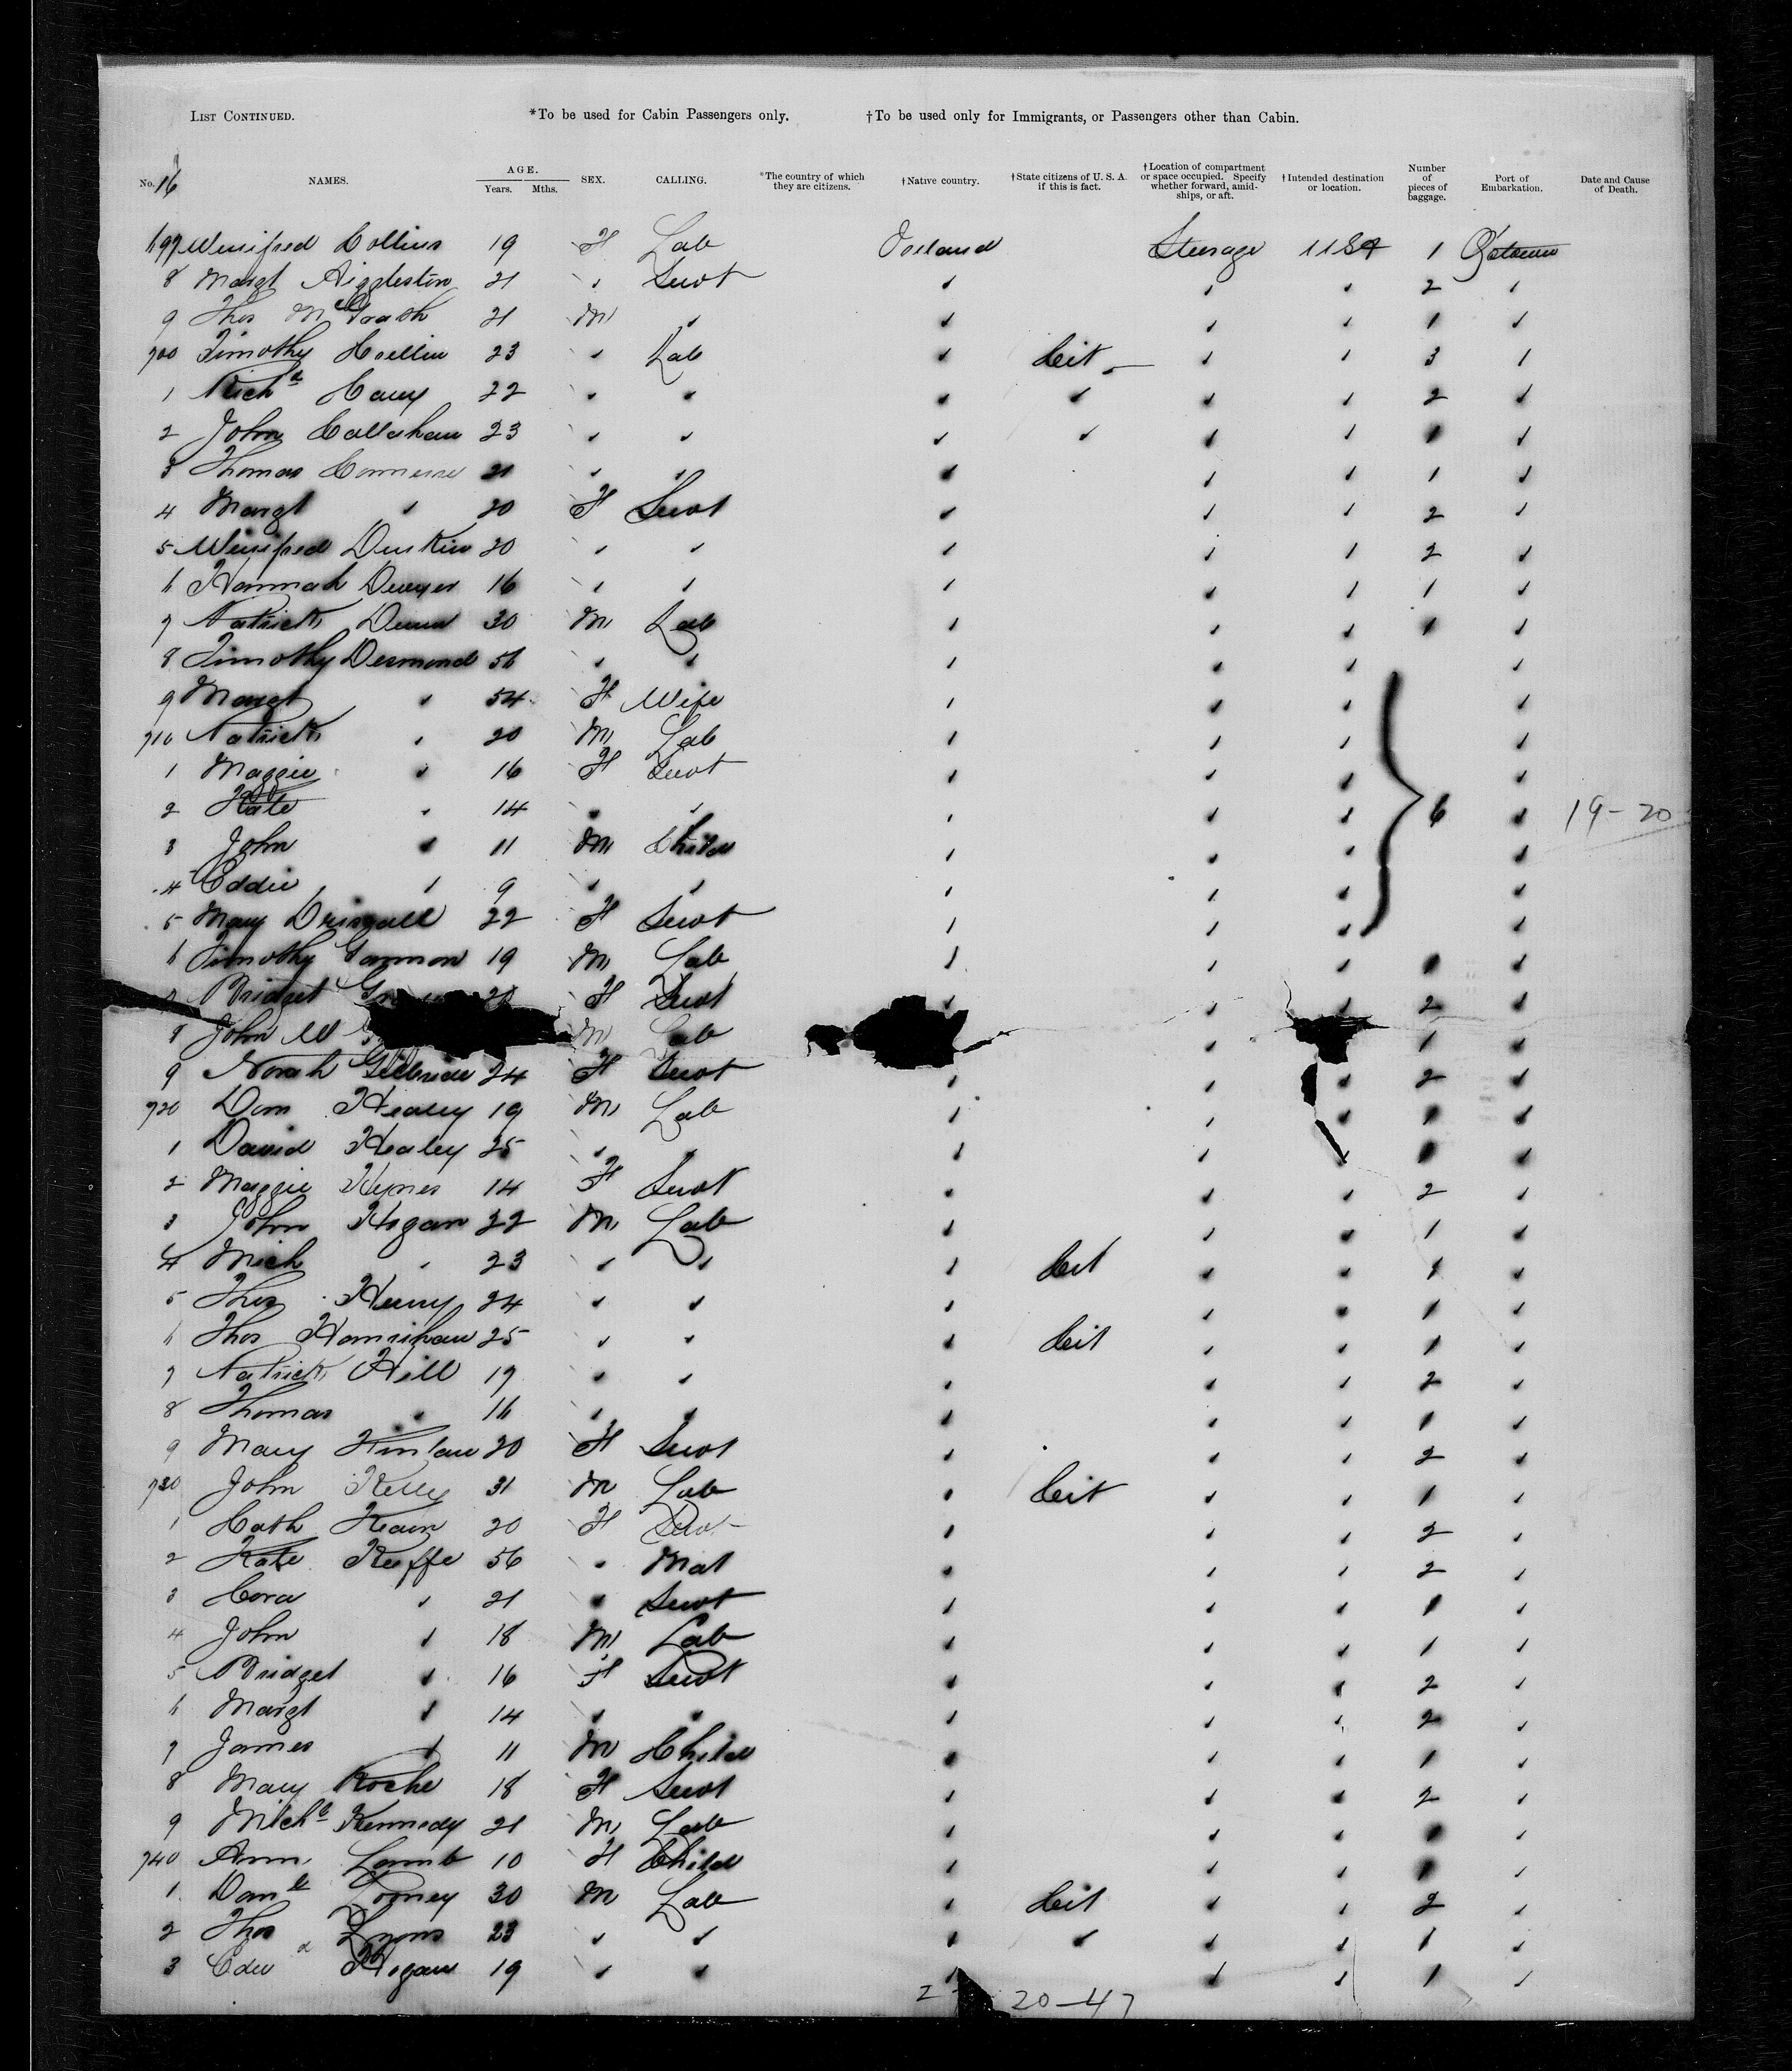 List Continued. *To be used for Cabin Passengers only. †To be used only for Immigrants, or Passengers other than Cabin.
No. 16 NAMES. AGE. Years. Mths. SEX. CALLING. *The country of which they are citizens. †Native country. †State citizens of U. S. A. if this is fact. †Location of compartment or space occupied. Specify whether forward, amidships, or aft. †Intended destination or location. Number of pieces of baggage. Port of Embarkation. Date and Cause of Death.
697 Winifred Collins 19 F Lab Ireland Steerage USA 1 Q'stown
8 Margt 21 " Servt " " " 2 "
9 Thos McGrath 21 M " " " " 1 "
700 Timothy 23 " Lab " Cit " " 3 "
1 Richd 22 " " " " " " 2 "
2 John Callahan 23 " " " " " " 1 "
3 Thomas 21 " " " " " 1 "
4 Margt " 20 F Servt " " " 2 "
5 Winifred Durkin 20 " " " " " 2 "
6 Hannah Dwyer 16 " " " " " 1 "
7 Patrick 30 M Lab " " " 1 "
8 Timothy Desmond 56 " " " " " "
9 Margt " 54 F Wife " " " "
710 Patrick " 20 M Lab " " " "
1 Maggie " 16 F Servt " " " "
2 Kate " 14 " " " " " 6 " 19-20
3 John " 11 M Child " " " "
4 Eddie " 9 " " " " " "
5 Mary Driscoll 22 F Servt " " " "
6 Timothy Gannon 19 M Lab " " " 1 "
7 Bridget F Servt " " " 2 "
8 John M Lab " 1 "
9 Norah Gilbride 24 F Servt " " " 2 "
720 Dom Healey 19 M Lab " " " 1 "
1 David Healey 25 " " " " " 1 "
2 Maggie Hynes 14 F Servt " " " 2 "
3 John Hogan 22 M Lab " " " 1 "
4 Mich " 23 " " " Cit " " 1 "
5 Thos 24 " " " " " 1 "
6 Thos Hourihan 25 " " " Cit " " 1 "
7 Patrick Hill 19 " " " " " 2 "
8 Thomas " 16 " " " " " 1 "
9 Mary 20 F Servt " " " 2 "
730 John Kelly 31 M Lab " Cit " " 1 "
1 Cath 20 F Servt " " " 2 "
2 Kate Keeffe 56 " Mat " " " 2 "
3 Cora " 21 " Servt " " " 1 "
4 John " 18 M Lab " " " 1 "
5 Bridget " 16 F Servt " " " 2 "
6 Margt " 14 " " " " " 2 "
7 James " 11 M Child " " " 1 "
8 Mary Roche 18 F Servt " " " 2 "
9 Michl Kennedy 21 M Lab " " " 1 "
740 Ann Lamb 10 F Child " " " 1 "
1 Danl Looney 30 M Lab " Cit " " 2 "
2 Thos Lyons 23 " " " " " " 1 "
3 Edwd Hogan 19 " " " " " 1 "
20-47